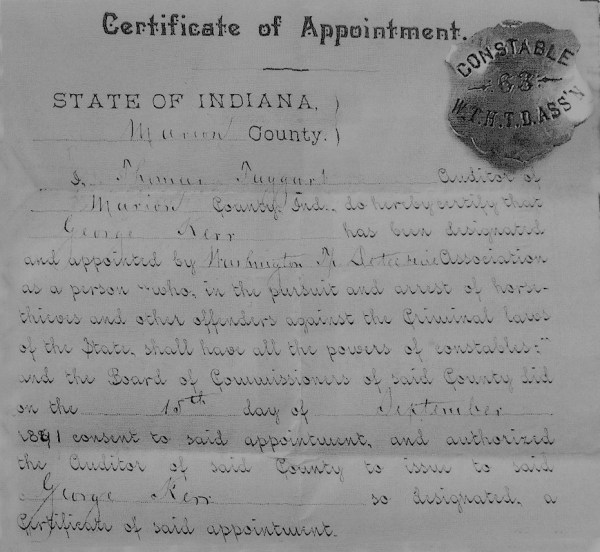 Certificate of Appointment.
CONSTABLE
63
W.T.H.T.D. ASS'N
STATE OF INDIANA, )
Marion County. )
I, Thomas Taggart Auditor of
Marion County, Ind., do hereby certify that
George Kerr has been designated
and appointed by Washington Tp Detective Association
as a person "who, in the pursuit and arrest of horse-
thieves and other offenders against the Criminal laws
of the State, shall have all the powers of constables;"
and the Board of Commissioners of said County did
on the 15th day of September
1891 consent to said appointment, and authorized
the Auditor of said County to issue to said
George Kerr so designated, a
Certificate of said appointment.